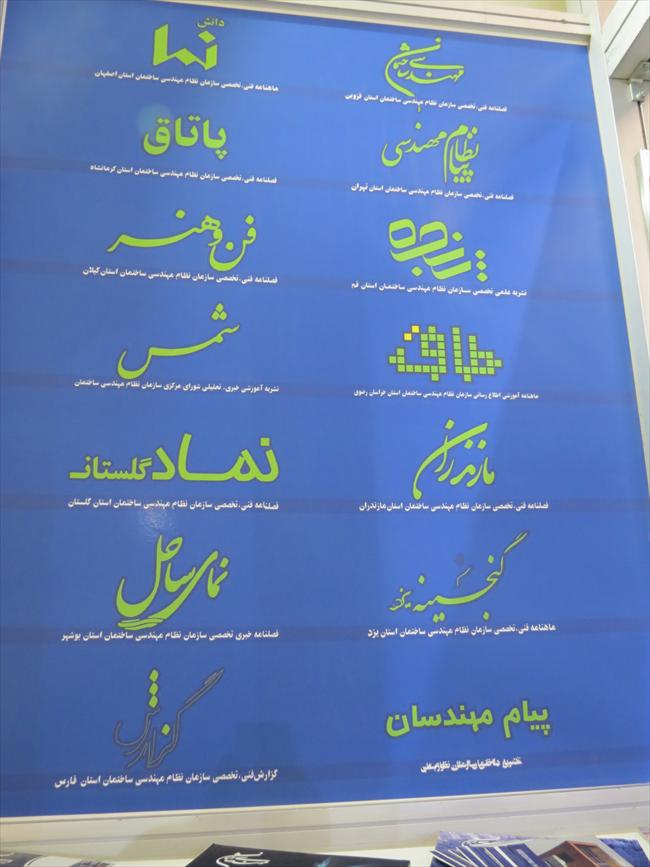 مهندسی ساختمان
فصلنامه فنی، تخصصی سازمان نظام مهندسی ساختمان استان قزوین
دانش
نما
ماهنامه فنی، تخصصی سازمان نظام مهندسی ساختمان استان اصفهان
پیام نظام مهندسی
فصلنامه فنی، تخصصی سازمان نظام مهندسی ساختمان استان تهران
پاتاق
فصلنامه فنی، تخصصی سازمان نظام مهندسی ساختمان استان کرمانشاه
پنجره
نشریه علمی تخصصی سازمان نظام مهندسی ساختمان استان قم
فن و هنر
فصلنامه فنی، تخصصی سازمان نظام مهندسی ساختمان استان گیلان
طاق
ماهنامه آموزشی اطلاع رسانی سازمان نظام مهندسی ساختمان استان خراسان رضوی
شمس
نشریه آموزشی خبری، تحلیلی شورای مرکزی سازمان نظام مهندسی ساختمان
مازندران
فصلنامه فنی، تخصصی سازمان نظام مهندسی ساختمان استان مازندران
نماد گلستان
فصلنامه فنی، تخصصی سازمان نظام مهندسی ساختمان استان گلستان
گنجینه یزد
ماهنامه فنی، تخصصی سازمان نظام مهندسی ساختمان استان یزد
نمای ساحل
فصلنامه خبری تخصصی سازمان نظام مهندسی ساختمان استان بوشهر
پیام مهندسان
گزارش
گزارش فنی، تخصصی سازمان نظام مهندسی ساختمان استان فارس